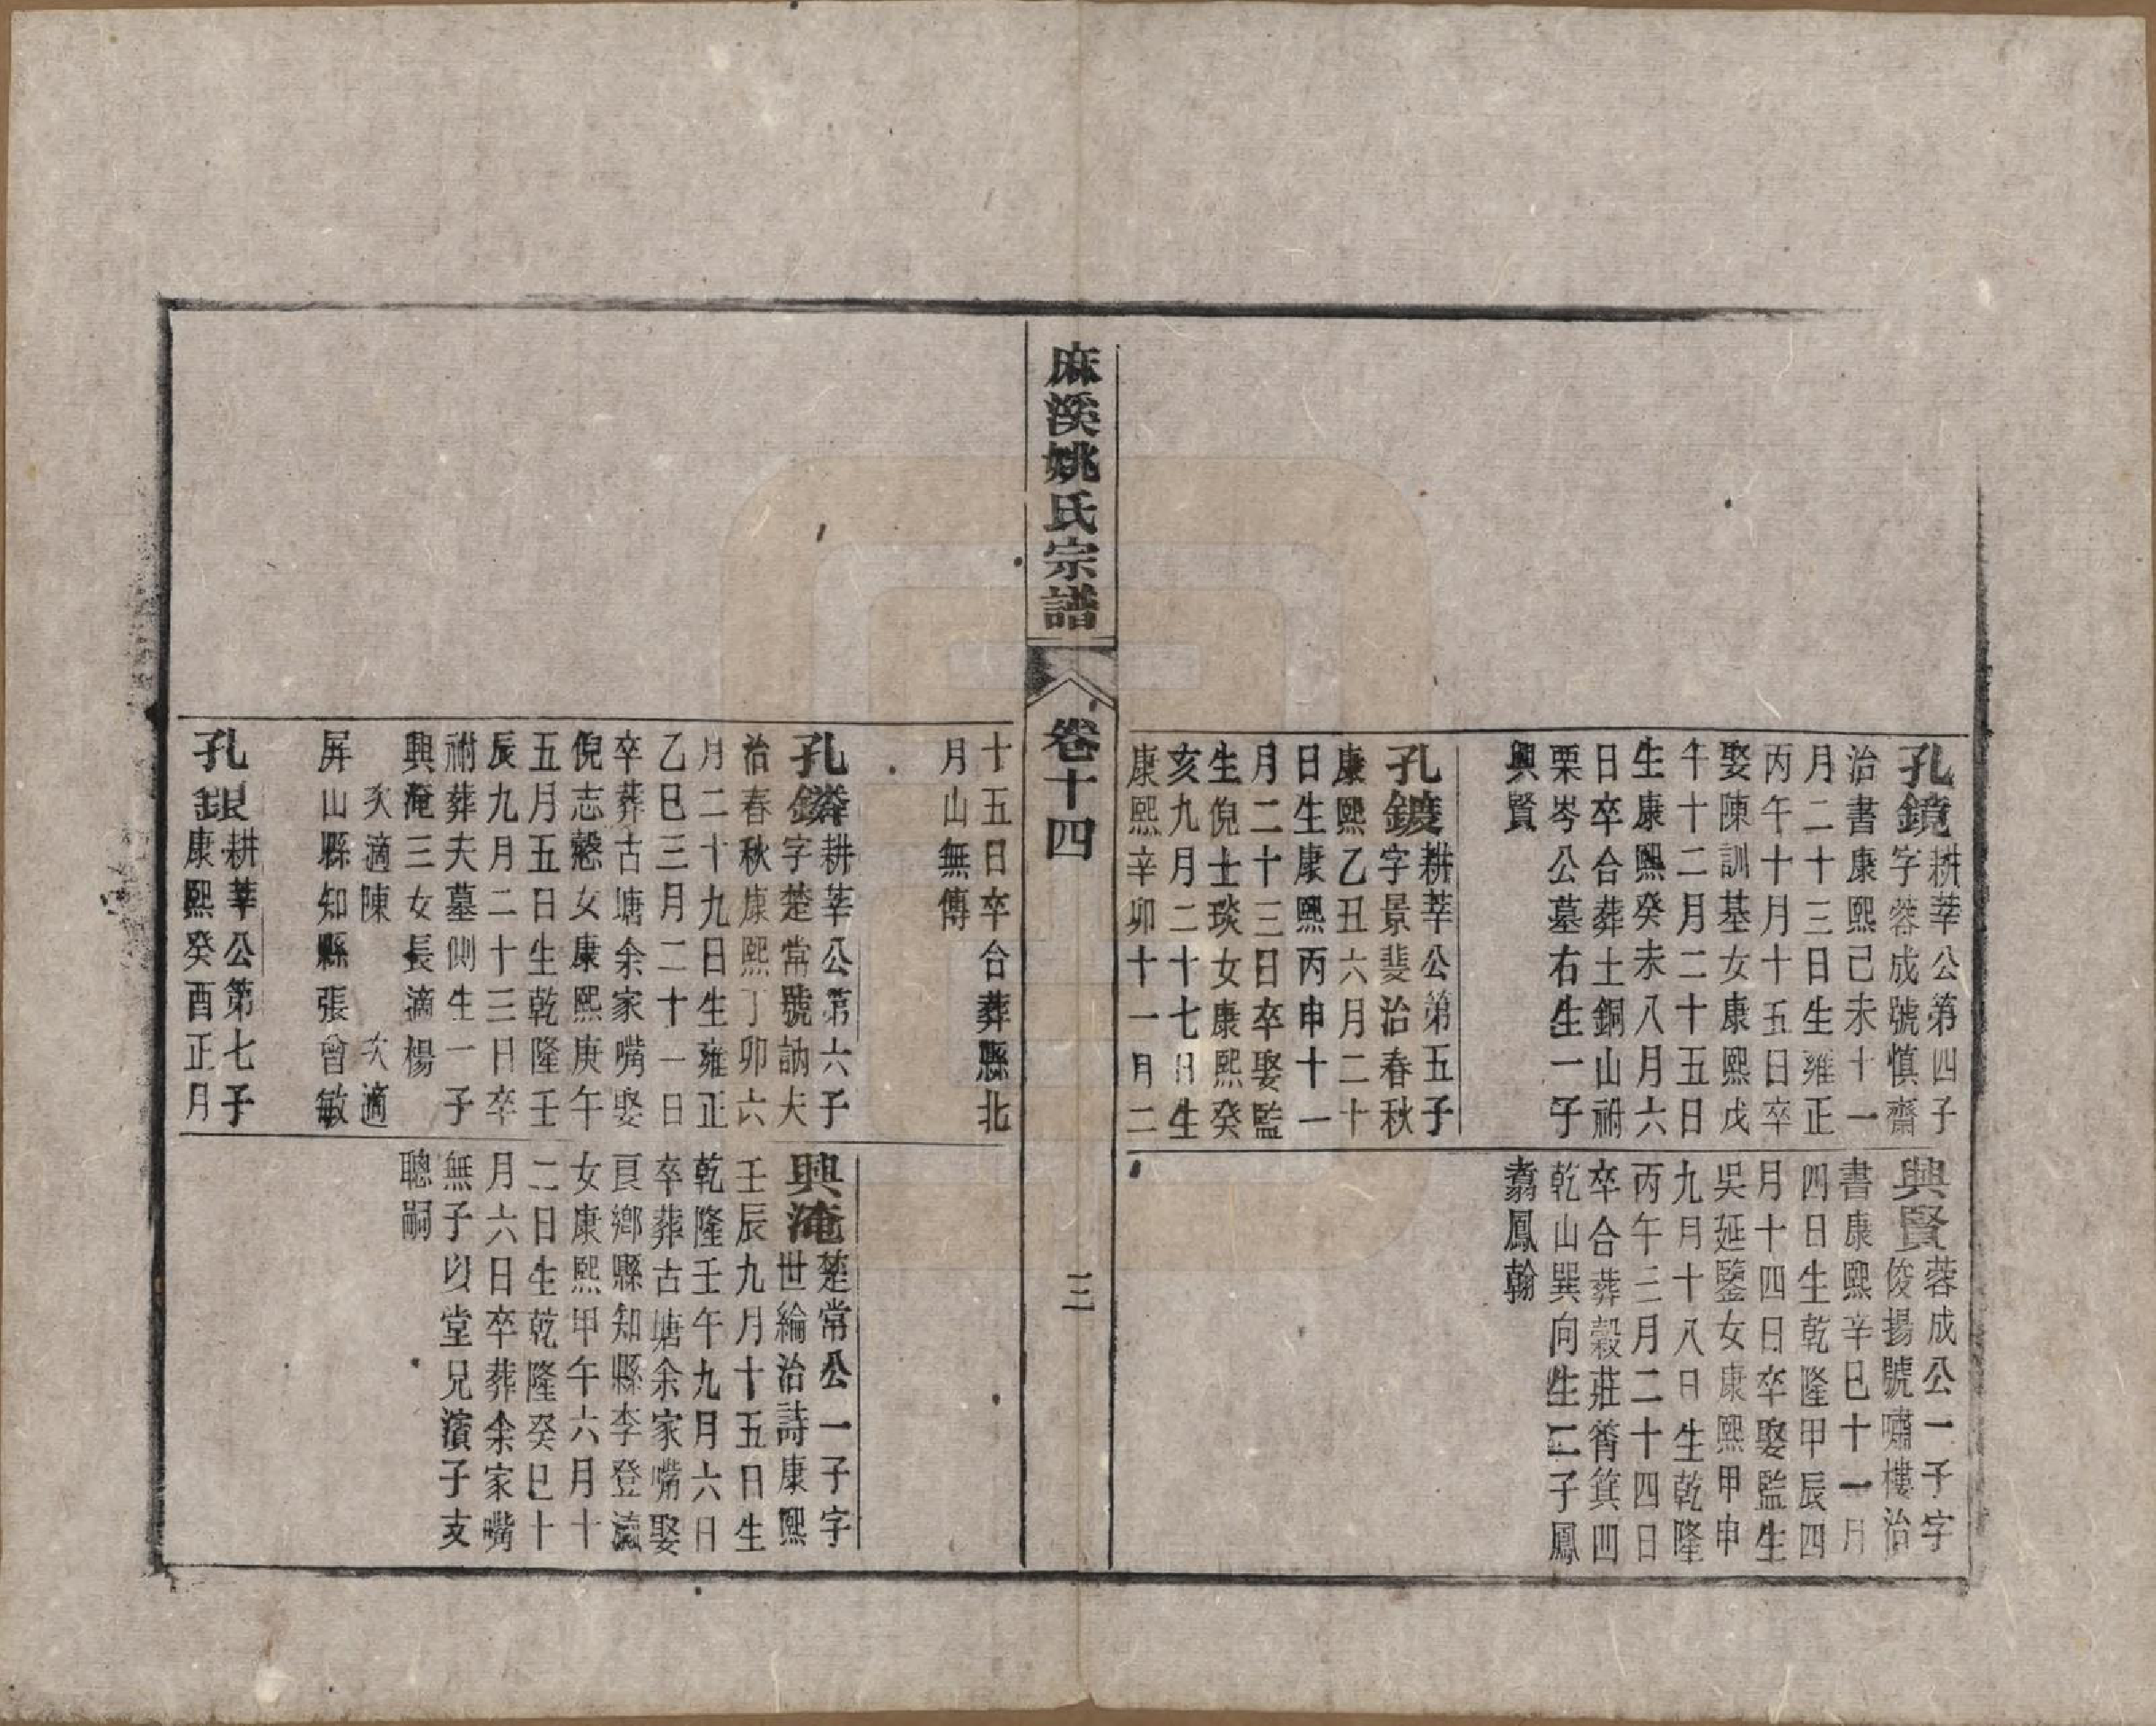 孔鏡耕莘公第四子
字蓉成號慎齋
治書康熙己未十一
月二十三日生雍正
丙午十月十五日卒
娶陳訓基女康熙戊
午十二月二十五日
生康熙癸未八月六
日卒合葬土銅山祔
栗岑公墓右生一子
興賢
孔鍍耕莘公第五子
字景斐治春秋
康熙乙丑六月二十
日生康熙丙申十一
月二十三日卒娶監
生倪士琰女康熙癸
亥九月二十七日生
康熙辛卯十一月二
興賢蓉成公一子字
俊揚號嘯樓治
書康熙辛巳十一月
四日生乾隆甲辰四
月十四日卒娶監生
吳延鑒女康熙甲申
九月十八日生乾隆
丙午三月二十四日
卒合葬穀莊筲箕凹
乾山巽向生二子鳳
翥鳳翰
麻溪姚氏宗譜
卷十四
三
十五日卒合葬縣北
月山無傳
孔鏻耕莘公第六子
字楚常號訥夫
治春秋康熙丁卯六
月二十九日生雍正
乙巳三月二十一日
卒葬古塘余家嘴娶
倪志懸女康熙庚午
五月五日生乾隆壬
辰九月二十三日卒
祔葬夫墓側生一子
興淹三女長適楊
次適陳 次適
屏山縣知縣張曾敏
孔銀耕莘公第七子
康熙癸酉正月
興淹楚常公一子字
世綸治詩康熙
壬辰九月十五日生
乾隆壬午九月六日
卒葬古塘余家嘴娶
良鄉縣知縣李登瀛
女康熙甲午六月十
二日生乾隆癸巳十
月六日卒葬余家嘴
無子以堂兄濱子支
聰嗣